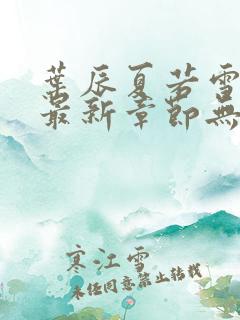 葉辰夏若雪
最新章節無
寒江雪
未经同意禁止转载